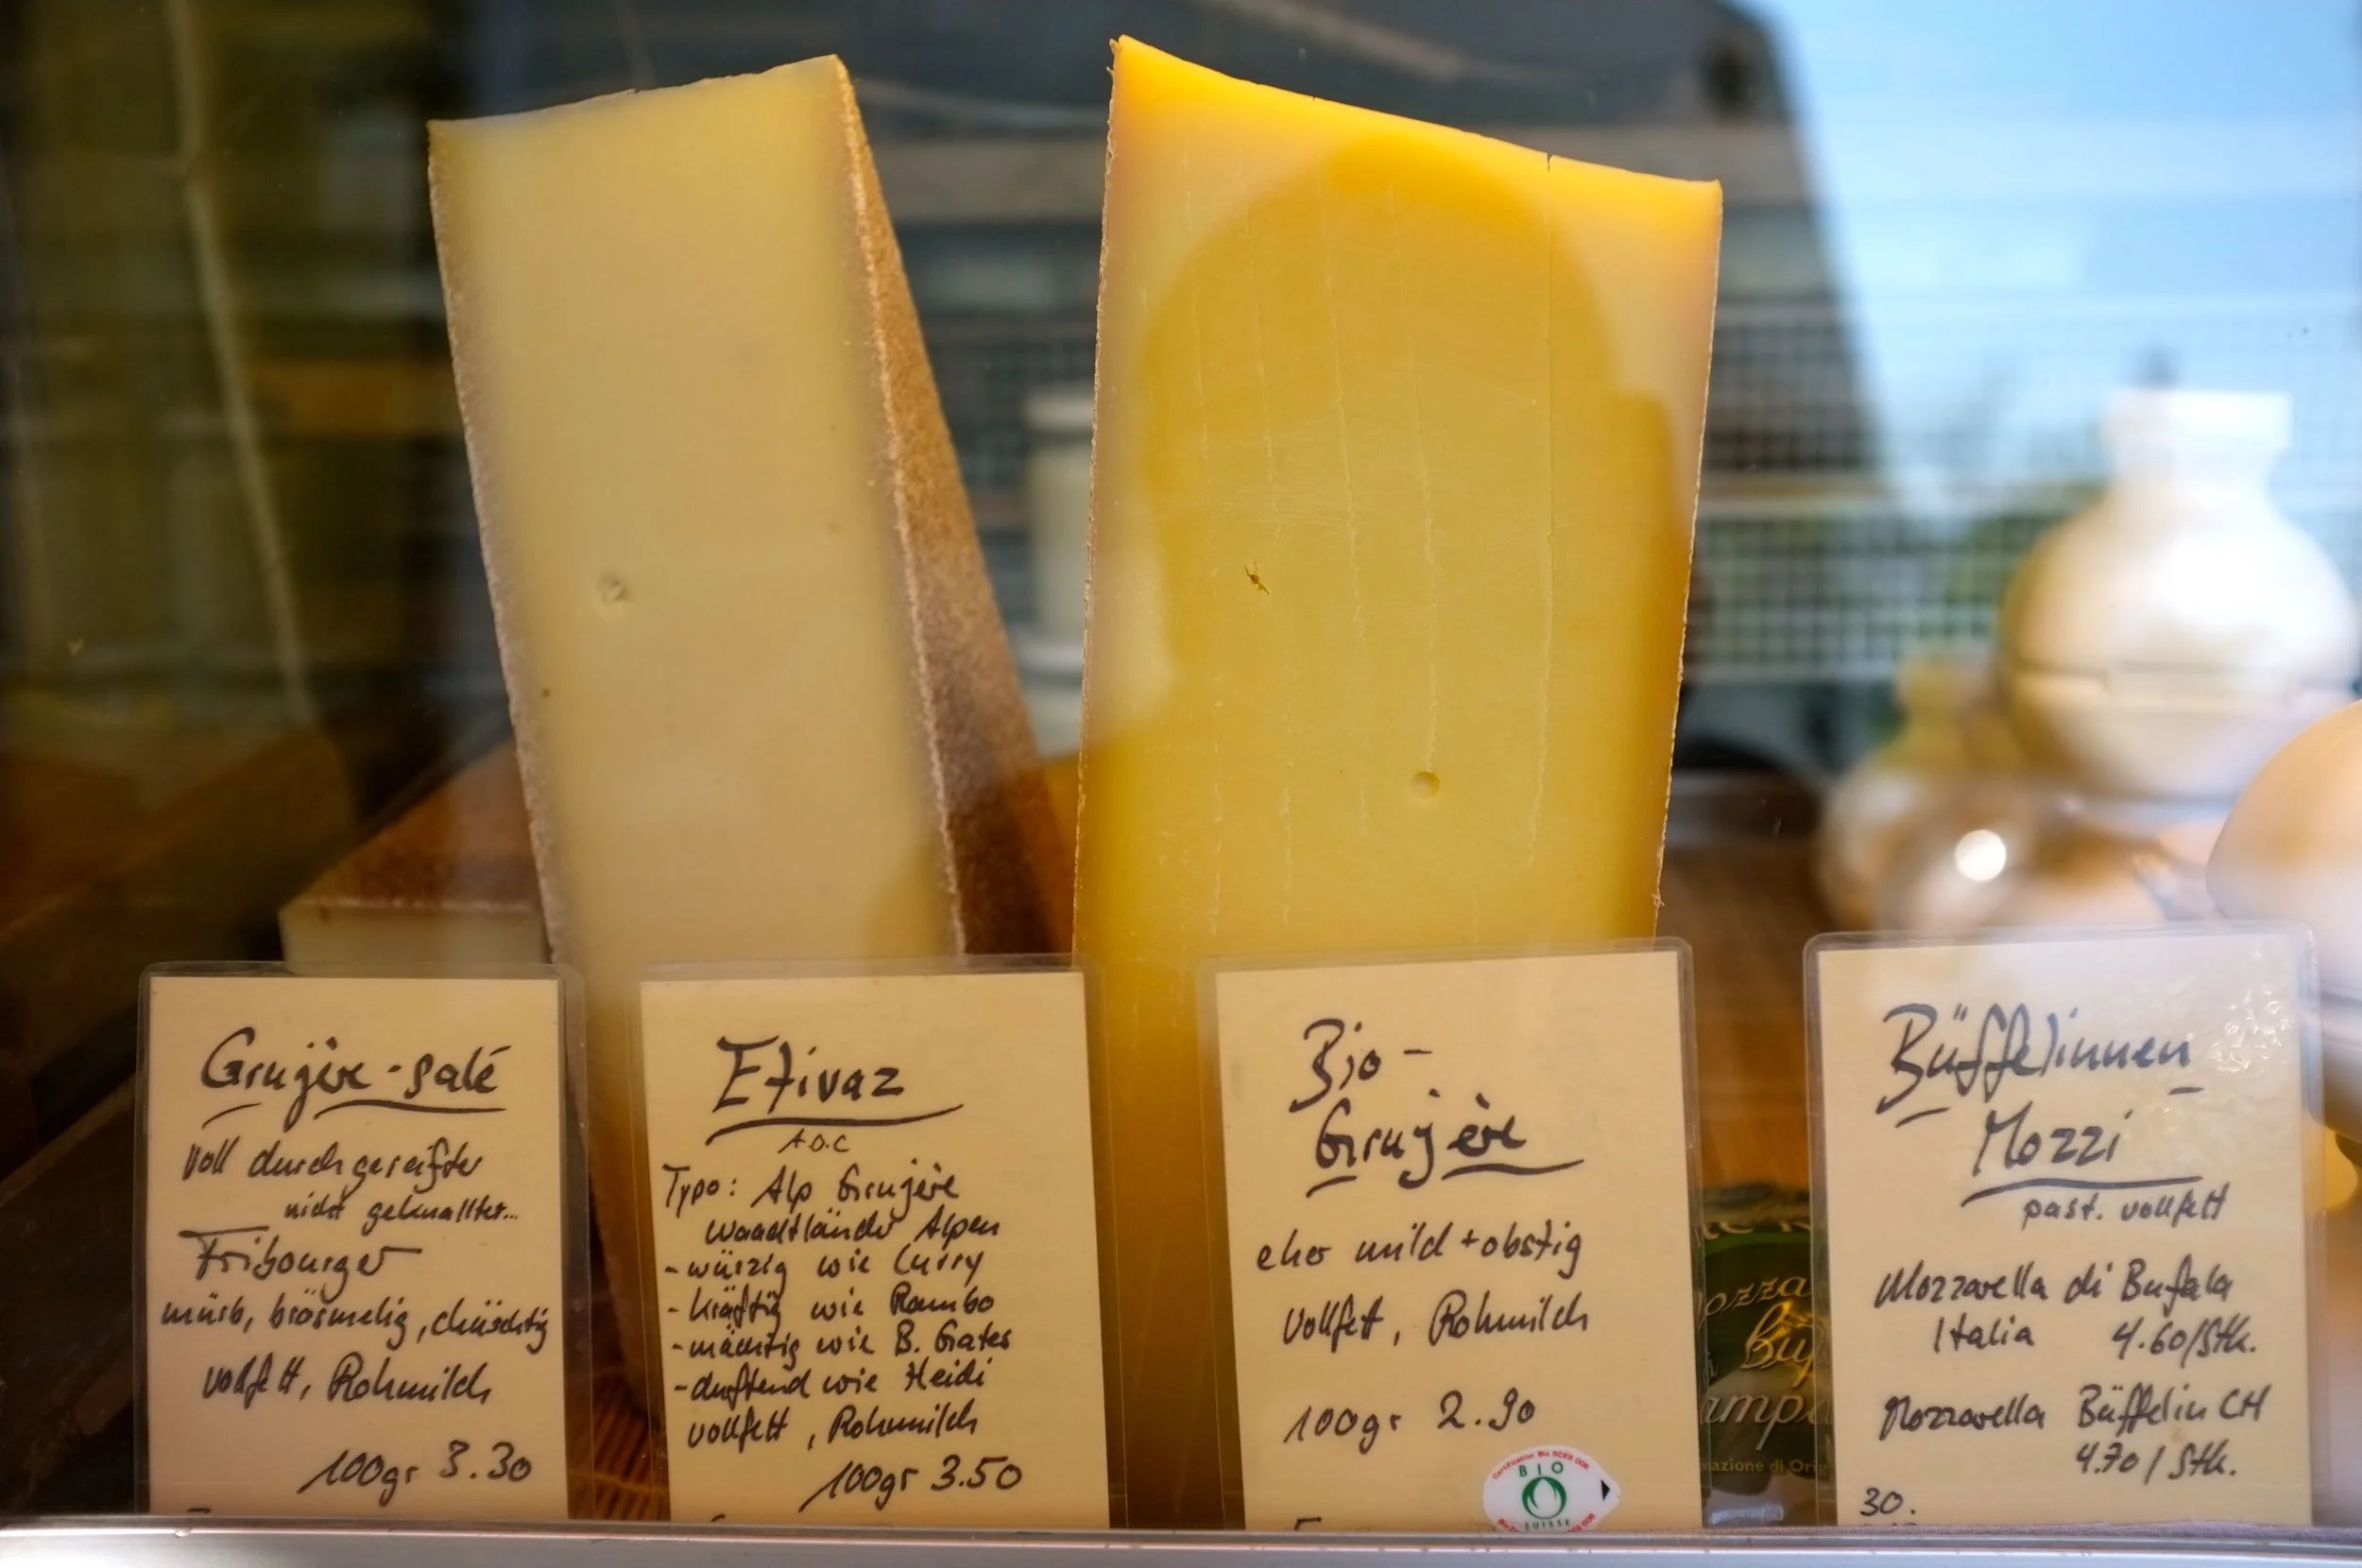 Gruyère-salé
voll durchgereifter
nicht geknallter...
Fribourger
mürb, brösmelig, chüschtig
vollfett, Rohmilch
100gr 3.30
Etivaz
A.O.C
Typo: Alp Gruyère
Waadtländer Alpen
-würzig wie Curry
-kräftig wie Rambo
-mächtig wie B. Gates
-duftend wie Heidi
vollfett, Rohmilch
100gr 3.50
Bio-
Gruyère
eher mild + obstig
Vollfett, Rohmilch
100gr 2.90
BIO
SUISSE
Büffelinnen-
Mozzi
past. vollfett
Mozzarella di Bufala
Italia 4.60/Stk.
Mozzarella Büffelin CH
4.70/Stk.
30.